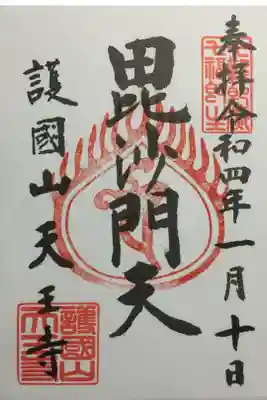 奉拝令和四年一月十日
毘沙門天
護國山天王寺
護國山
天王寺